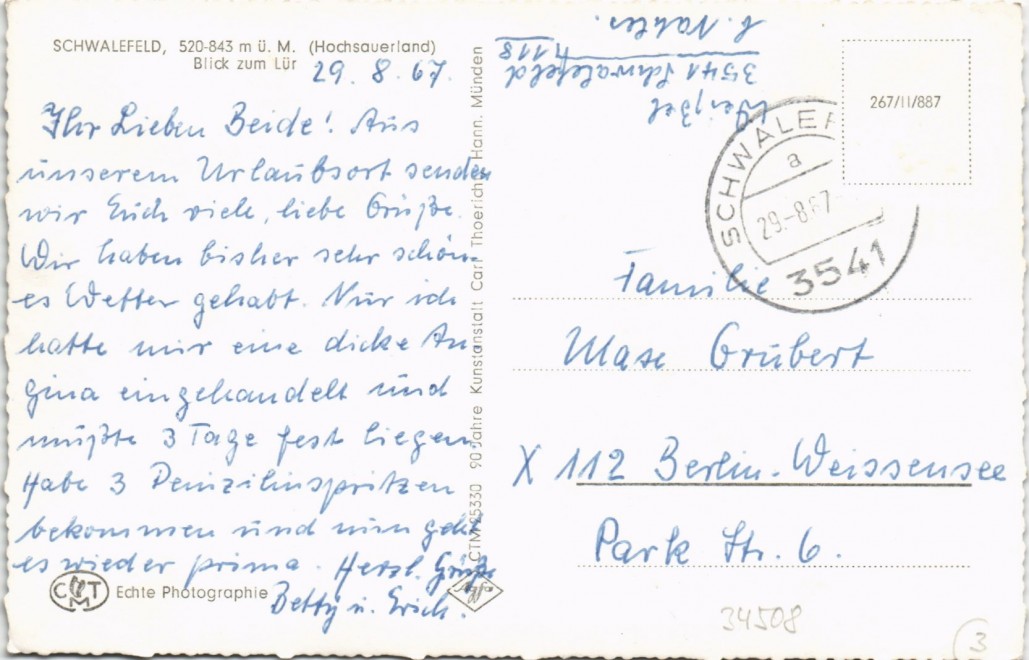 SCHWALEFELD, 520-843 m ü. M. (Hochsauerland)
Blick zum Lür
29. 8. 67.
Ihr Lieben Beide! Aus
unserem Urlaubsort senden
wir Euch viele, liebe Grüße.
Wir haben bisher sehr schön-
es Wetter gehabt. Nur ich
hatte mir eine dicke An
gina eingehandelt und
mußte 3 Tage fest liegen.
Habe 3 Penizilinspritzen
bekommen und nun geht
es wieder prima. Herzl. Grüße
Betty u. Erich.
CMT
Echte Photographie
Agfa
CTM 25330 90 Jahre Kunstanstalt Carl Thoericht Hann. Münden
3541 Schwalefeld
118
267/II/887
SCHWALEF
a
29.-8.67
3541
Familie
Max Grubert
X 112 Berlin-Weissensee
Park Str. 6.
34508
3